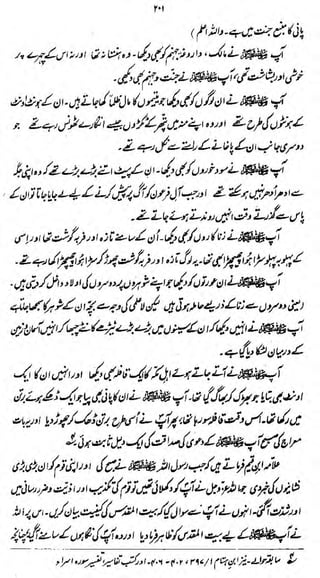 ۲۰۱
پانی کا منبع جنت میں ہے۔ واللہ اعلم)
آپ ﷺ نے مالک، داروغہ جہنم کو بھی دیکھا۔ وہ ہنستا نہ تھا اور نہ اس کے چہرے پر
خوشی اور بشاشت تھی، آپ ﷺ نے جنت و جہنم بھی دیکھی۔
آپ ﷺ نے ان لوگوں کو بھی دیکھا جو یتیموں کا مال ظلماً کھا جاتے ہیں۔ ان کے ہونٹ اونٹ
کے ہونٹوں کی طرح تھے اور وہ اپنے منہ میں پتھر کے ٹکڑوں جیسے انگارے ٹھونس رہے تھے جو
دوسری جانب ان کے پاخانے کے راستے سے نکل رہے تھے۔
آپ ﷺ نے سود خوروں کو بھی دیکھا۔ ان کے پیٹ اتنے بڑے بڑے تھے کہ وہ اپنی جگہ
سے ادھر اُدھر نہیں ہو سکتے تھے اور جب آل فرعون کو آگ پر پیش کرنے کے لیے لے جایا جاتا تو ان کے
پاس سے گذرتے وقت انہیں روندتے ہوئے جاتے تھے۔
آپ ﷺ نے زنا کاروں کو بھی دیکھا۔ اُن کے سامنے تازہ اور فربہ گوشت تھا اور اسی
کے پہلو بہ پہلو سڑا ہوا چھیچھڑا بھی تھا۔ یہ لوگ تازہ اور فربہ گوشت چھوڑ کر سڑا ہوا چھیچھڑا کھا رہے تھے۔
آپ ﷺ نے ان عورتوں کو دیکھا جو اپنے شوہروں پر دوسروں کی اولاد داخل کر دیتی ہیں۔
(یعنی دوسروں سے زنا کے ذریعے حاملہ ہوتی ہیں لیکن لاعلمی کی وجہ سے بچہ ان کے شوہر کا سمجھا جاتا ہے)
آپ ﷺ نے انہیں دیکھا کہ ان کے سینوں میں بڑے بڑے ٹیڑھے کانٹے چبھا کر انہیں آسمان و زمین
کے درمیان لٹکا دیا گیا ہے۔
آپ ﷺ نے آتے جاتے ہوئے اہل مکہ کا ایک قافلہ بھی دیکھا اور انہیں ان کا ایک
اونٹ بھی بتایا جو بھڑک کر بھاگ گیا تھا۔ آپ ﷺ نے ان کا پانی بھی پیا جو ایک ڈھکے ہوئے برتن
میں رکھا تھا۔ اس وقت قافلہ سو رہا تھا، پھر آپ نے اُسی طرح برتن ڈھک کر چھوڑ دیا اور یہ بات
معراج کی صبح آپ ﷺ کے دعویٰ کی صداقت کی ایک دلیل ثابت ہوئی
علامہ ابن قیم فرماتے ہیں کہ جب رسول اللہ ﷺ نے صبح کی اور اپنی قوم کو ان بڑی بڑی
نشانیوں کی خبر دی جو اللہ عز وجل نے آپ کو دکھلائی تھیں تو قوم کی تکذیب اور اذیت و ضرر رسانی میں
اور شدت آگئی۔ انہوں نے آپ سے سوال کیا کہ بیت المقدس کی کیفیت بیان کریں۔ اس پر اللہ
نے آپ ﷺ کے لیے بیت المقدس کو ظاہر فرما دیا اور وہ آپ کی نگاہوں کے سامنے آگیا چنانچہ
سابقہ حوالے۔ نیز ابن ہشام ۱/ ۳۹۷، ۴۰۲-۴۰۶ اور کتب تفاسیر تفسیر سورہ اسراء